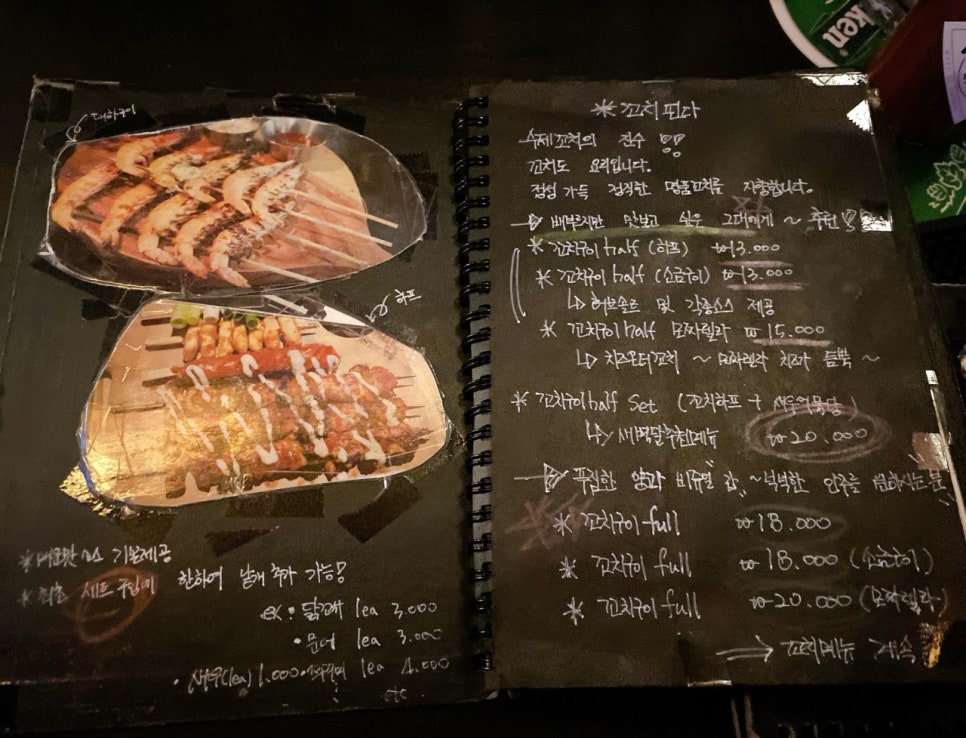 대하구이
하프
*매운맛 소스 기본제공
*최초 세트 구입시
한하여 낱개 추가 가능!
ex. 닭꼬치 1ea 3,000
• 문어 1ea 3,000
• 새우(1ea) 1,000 • 1ea 4,000
etc
ken
* 꼬치 핀다
수제꼬치의 진수 !!
꼬치도 요리입니다.
정성 가득 정직한 명품꼬치를 지향합니다.
배부르지만 맛보고 싶은 그대에게 ~ 추천!!
* 꼬치구이 half (하프) ₩13.000
* 꼬치구이 half (소금구이) ₩13.000
↳ 허브솔트 및 각종소스 제공
* 꼬치구이 half 모짜렐라 ₩15.000
↳ 치즈몬터꼬치 ~ 모짜렐라 치즈가 듬뿍 ~
* 꼬치구이 half Set (꼬치하프 + 새우어묵탕)
↳ 새벽달 추천메뉴 ₩20.000
푸짐한 양과 비쥬얼 갑 ~ 넉넉한 안주를 원하시는 분
* 꼬치구이 full ₩18.000
* 꼬치구이 full ₩18.000 (소금구이)
* 꼬치구이 full ₩20.000 (모짜렐라)
⇒ 꼬치메뉴 계속